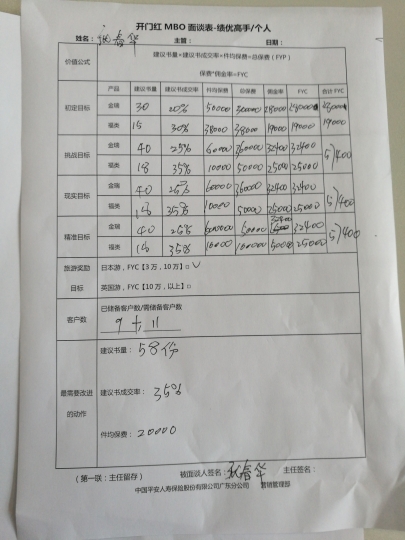 开门红 MBO 面谈表-绩优高手/个人
姓名： 张春华 主管： 日期：
价值公式 建议书量×建议书成交率×件均保费=总保费（FYP）
保费*佣金率=FYC
产品 建议书量 建议书成交率 件均保费 总保费 佣金率 FYC 合计 FYC
初定目标 金瑞 30 20% 50000 300000 28000
福类 15 30% 38000 38000 19000 19000 19000
挑战目标 金瑞 40 25% 60000 360000 32400 32400 57400
福类 18 35% 10000 50000 25000 25000
现实目标 金瑞 40 25% 60000 360000 32400 32400 57400
福类 18 35% 10000 50000 25000 25000
精准目标 金瑞 40 25% 32400 32400 57400
福类 18 35% 10000 25000
旅游奖励 日本游，FYC【3 万，10 万】□ √
目标 英国游，FYC【10 万，以上】□
客户数 已储备客户数/需储备客户数
9 + 11
最需要改进的动作
建议书量：58份
建议书成交率：35%
件均保费：20000
被面谈人签名：张春华 主任签名：
（第一联：主任留存）
中国平安人寿保险股份有限公司广东分公司 营销管理部